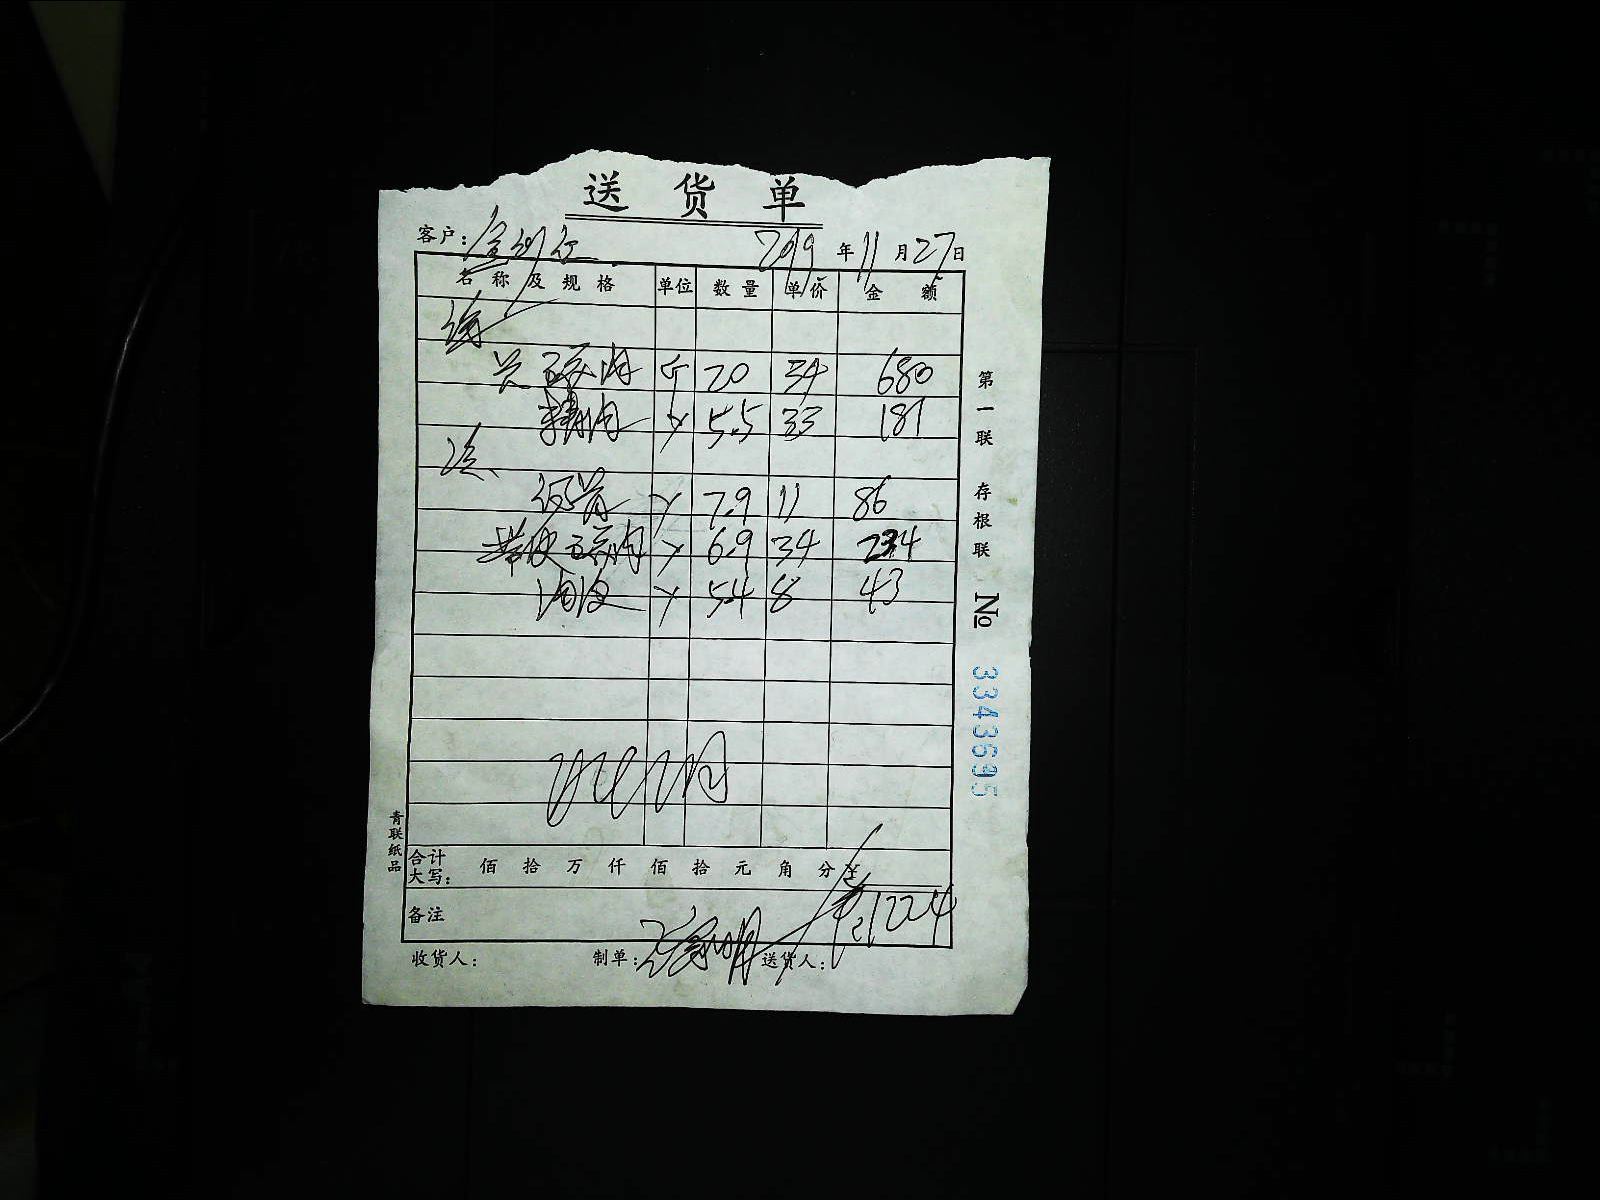 送货单
客户: 2019年11月27日
名称及规格 单位 数量 单价 金额
五花肉 斤 20 34 680
精肉 〃 5.5 33 181
〃 7.9 11 86
带皮五花肉 〃 6.9 34 234
〃 5.4 8 43
合计大写: 佰 拾 万 仟 佰 拾 元 角 分 ¥ 1224
备注
收货人: 制单: 送货人:
第一联 存根联 № 3343695
青联纸品